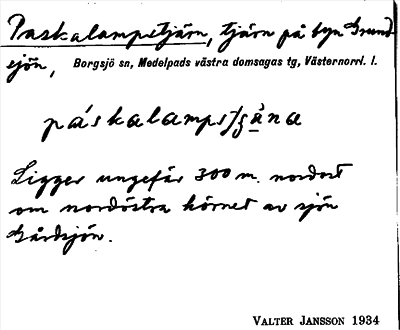 Paskalampetjärn, tjärn på byn Grund
sjön, Borgsjö sn, Medelpads västra domsagas tg, Västernorrl. l.
páskalamps
Ligger ungefär 300 m. nordost
om nordöstra hörnet av sjön
Gårdsjön.
VALTER JANSSON 1934